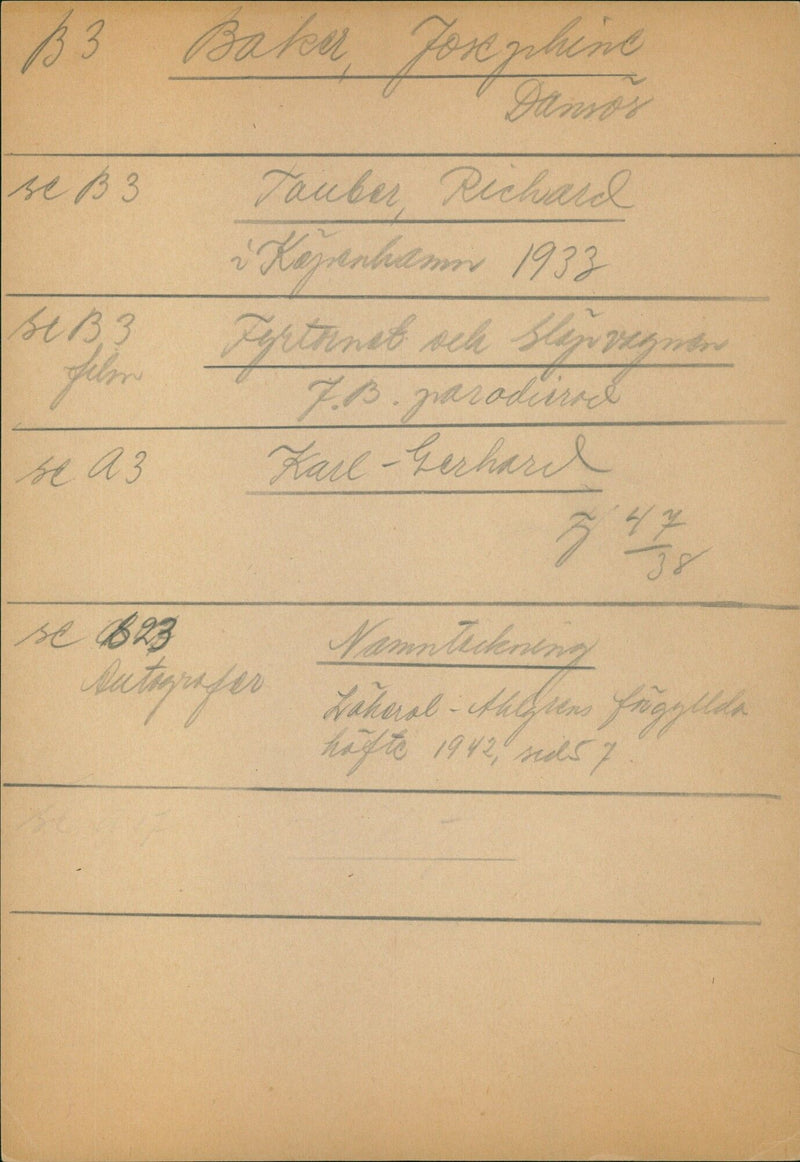 B3 Baker, Josephine
Dansös
se B3 Tauber, Richard
i Köpenhamn 1933
se B3 Fyrtornet och Släpvagnen
film J.B. parodierad
se A3 Karl-Gerhard
47
38
se B23 Namnteckning
Autografer
Låkerol-Ahlgrens förgyllda
häfte 1942, sid 57.
se